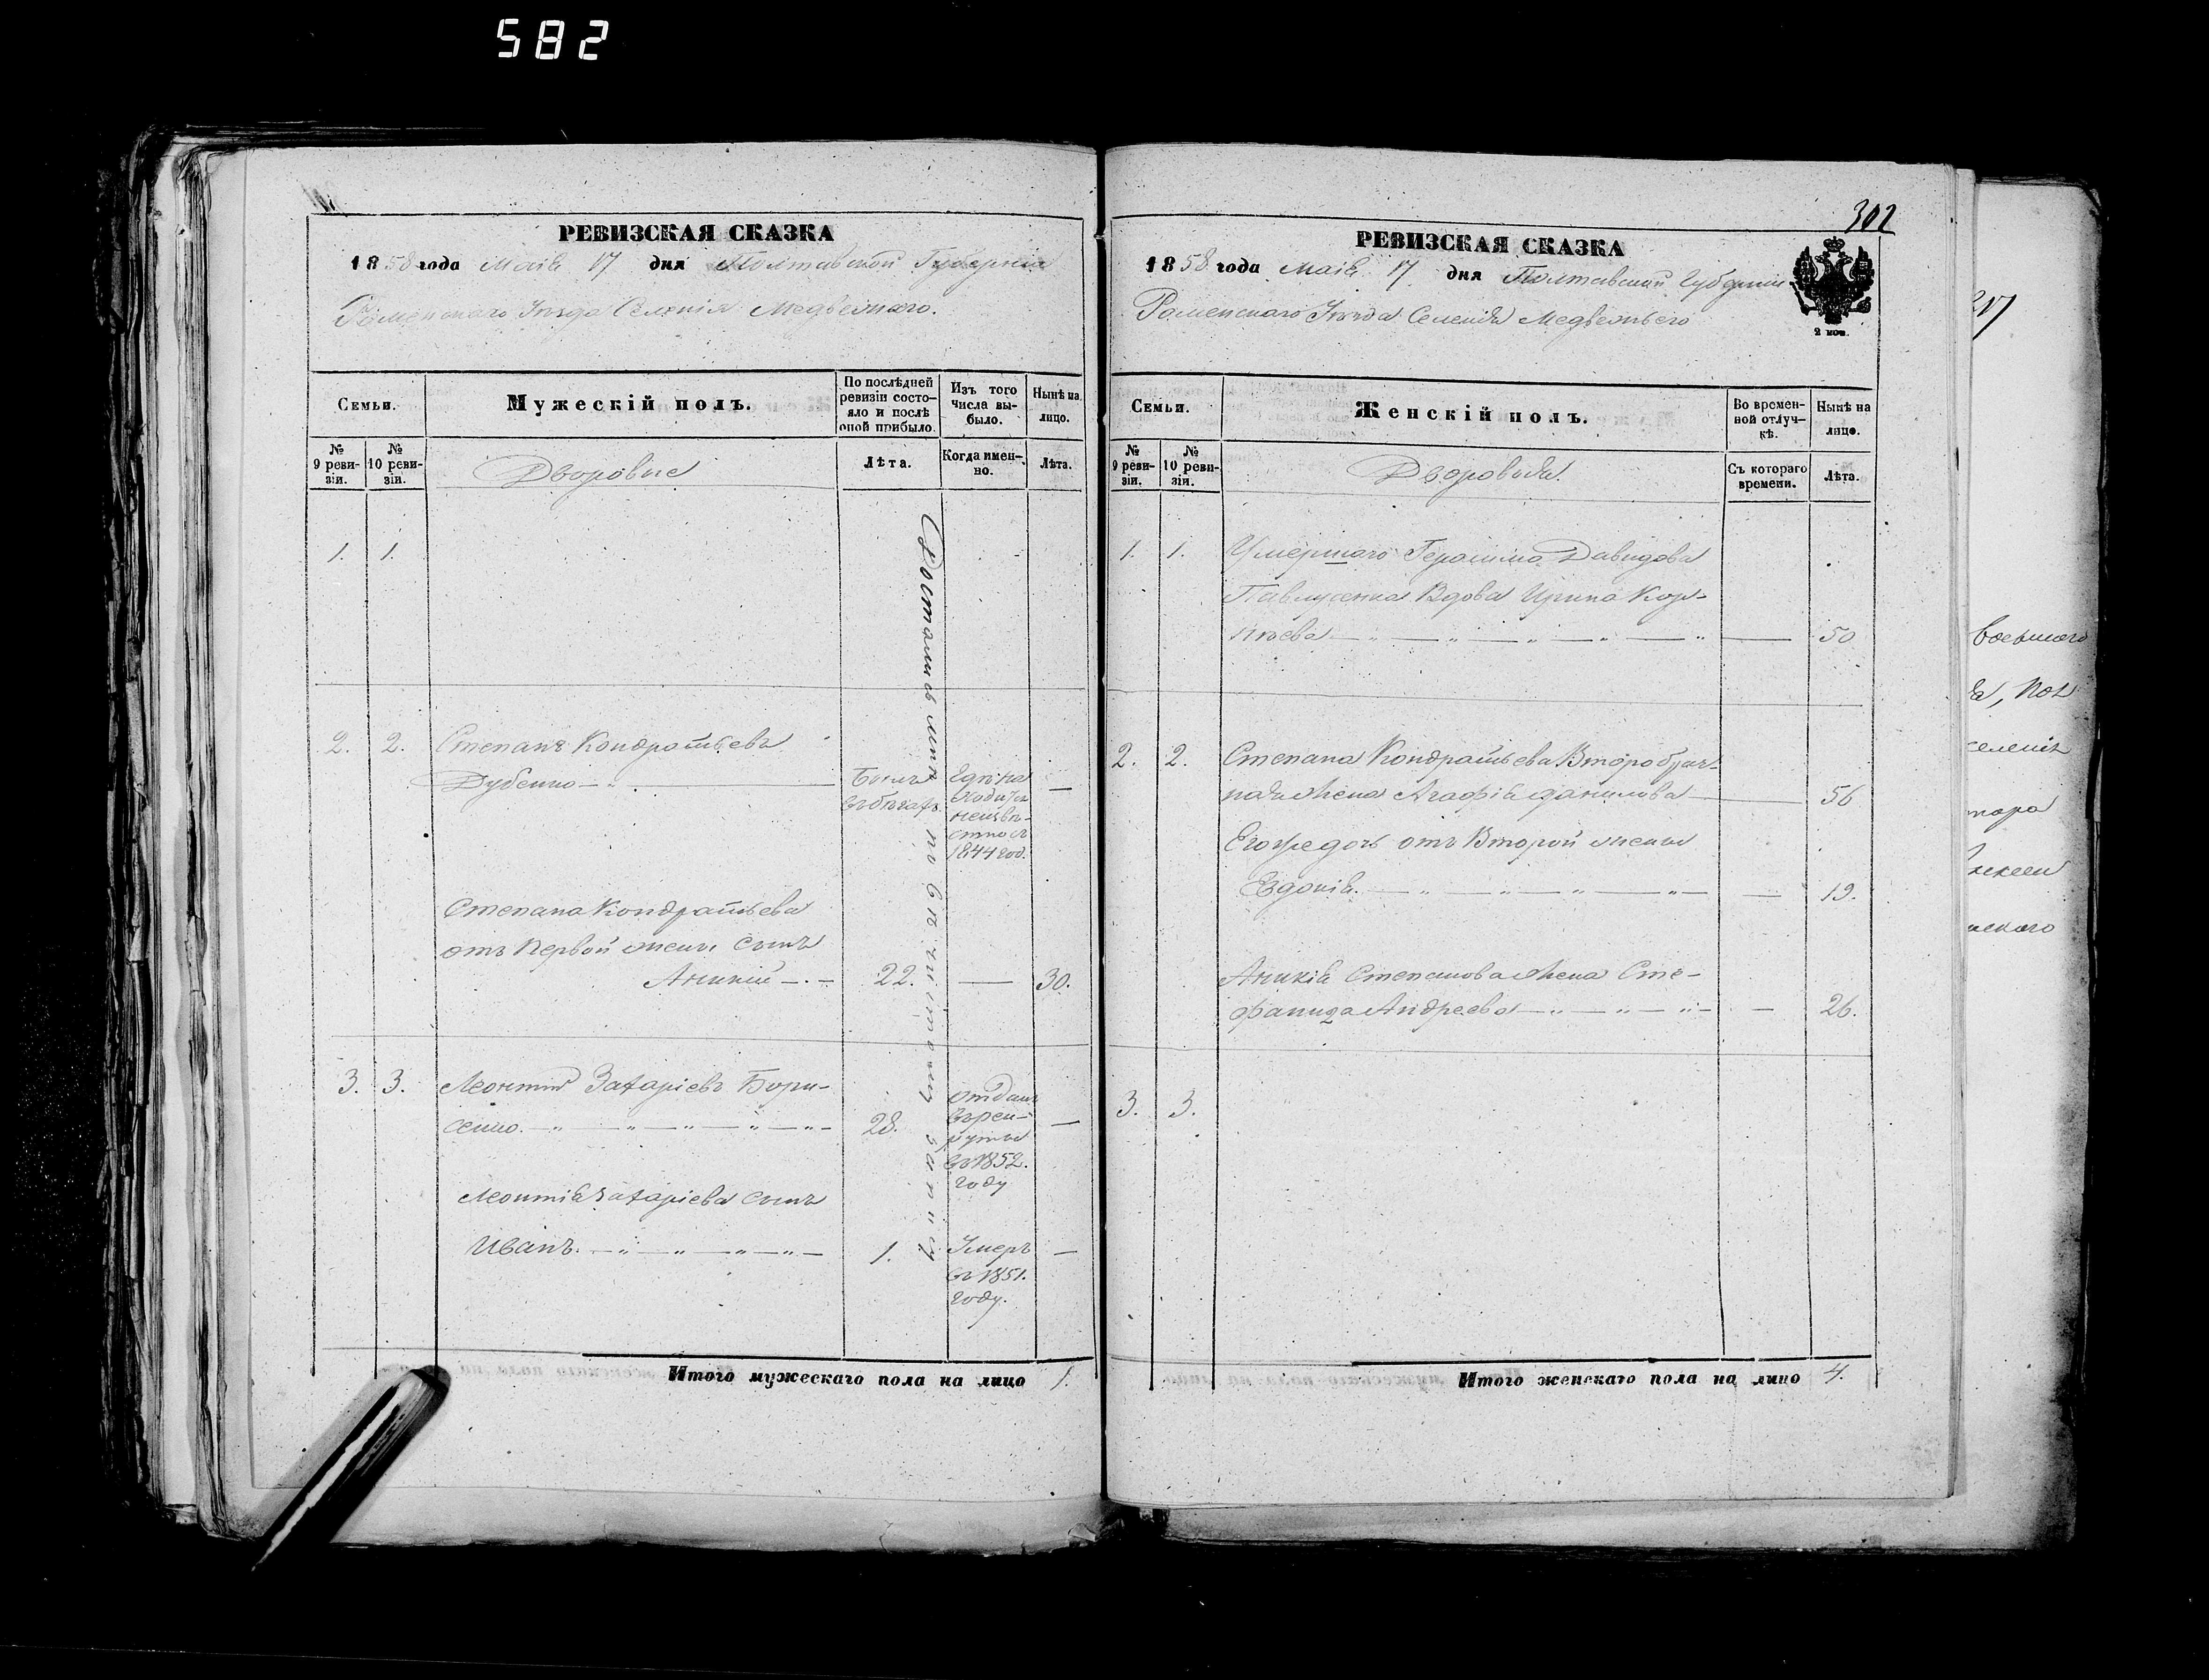 582
РЕВИЗСКАЯ СКАЗКА
1858 года Маія 17 дня Полтавской Губерніи
Роменского Уѣзда Селенія Медвежаго.
Семьи.
Мужескій полъ.
По послѣдней ревизіи состояло и послѣ оной прибыло.
Изъ того числа выбыло.
Нынѣ на лицо.
№ 9 ревизіи.
№ 10 ревизіи.
Дворовые
Лѣта.
Когда именно.
Лѣта.
1. 1.
2. 2. Степанъ Кондратьевъ
Дубенко
Былъ въ бѣгахъ
Гдѣ находится неизвѣстно съ 1844 год.
—
Степана Кондратьева
отъ Первой жены сынъ
Аникій 22. — 30.
3. 3. Леонтій Захаріевъ Бори-
сенко. 28.
отданъ
въ рек-
руты
въ 1852.
году
—
Леонтія Захаріева сынъ
Иванъ. 1.
Умеръ
въ 1851.
году.
—
Итого мужескаго пола на лицо 1.
302
РЕВИЗСКАЯ СКАЗКА
1858 года Маія 17 дня Полтавской Губерніи
Роменского Уѣзда Селенія Медвежьего
2 коп.
Семьи.
Женскій полъ.
Во временной отлучкѣ.
Нынѣ на лицо.
№ 9 ревизіи.
№ 10 ревизіи.
Дворовыя.
Съ котораго времени.
Лѣта.
1. 1. Умершаго Герасима Давидова
Павлусенка Вдова Ирина Кор-
нѣева — 50
2. 2. Степана Кондратьева Второбрач-
ная Жена Агафія Данилова — 56
Его же дочь отъ Второй жены
Евдокія. — 19.
Аникія Степанова Жена Сте-
фанида Андреева — 26.
3. 3.
Итого женскаго пола на лицо 4.
217